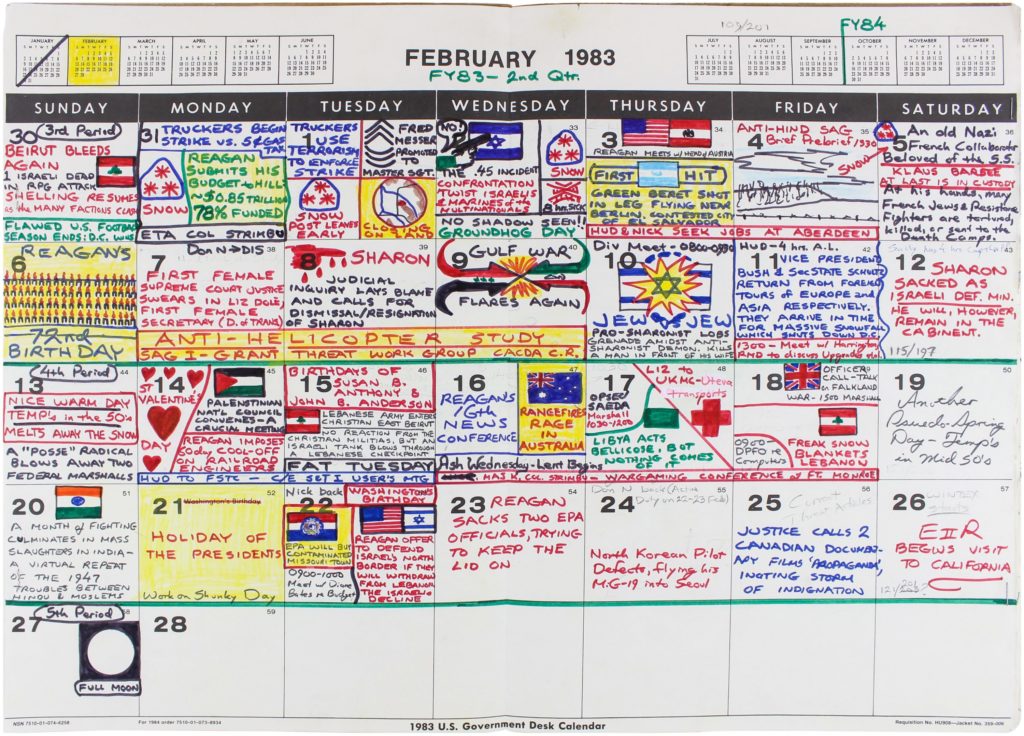 103/201
FY84
JANUARY FEBRUARY MARCH APRIL MAY JUNE
FEBRUARY 1983
FY83 - 2nd Qtr.
JULY AUGUST SEPTEMBER OCTOBER NOVEMBER DECEMBER
SUNDAY MONDAY TUESDAY WEDNESDAY THURSDAY FRIDAY SATURDAY
30 3rd Period
BEIRUT BLEEDS
AGAIN
1 ISRAELI DEAD
IN RPG ATTACK
SHELLING RESUMES
as the MANY FACTIONS CLASH
FLAWED U.S. FOOTBALL
SEASON ENDS: D.C. WINS
31
TRUCKERS BEGIN
STRIKE VS. 5¢ GAS
TAX
SNOW
REAGAN
SUBMITS HIS
BUDGET to HILL
~$0.85 TRILLION
78% FUNDED
ETA COL STRIKBU
1
TRUCKERS
USE
TERRORISM
TO ENFORCE
STRIKE
FRED
MESSER
PROMOTED
TO
MASTER SGT.
SNOW
POST LEAVES
EARLY
CLOSING
2 33
NO!
THE .45 INCIDENT
CONFRONTATION
TWIXT ISRAELIS
& MARINES of the
MULTINATIONALS
NO SHADOW SEEN!!
GROUNDHOG DAY
SNOW
3 34
REAGAN MEETS w/ HEAD of AUSTRIA
FIRST HIT
GREEN BERET SHOT
IN LEG FLYING NEAR
BERLIN, CONTESTED CITY
OF EL SALVADOR
HUD & NICK SEEK JOBS AT ABERDEEN
4 35
ANTI-HIND SAG
Brief Prebrief 1530
SNOW
5 36
An old Nazi
French Collaborator
Beloved of the S.S.
KLAUS BARBIE
AT LAST IS IN CUSTODY
At his hands, many
French Jews & Resistance
Fighters are tortured,
killed, or sent to the
Death Camps.
6
REAGAN'S
72nd
BIRTHDAY
7 38
Don N → DIS
FIRST FEMALE
SUPREME COURT JUSTICE
SWEARS IN LIZ DOLE,
FIRST FEMALE
SECRETARY (D. of TRANS)
8 39
SHARON
JUDICIAL
INQUIRY LAYS BLAME
AND CALLS FOR
DISMISSAL/RESIGNATION
OF SHARON
9 40
GULF WAR
FLARES AGAIN
10
Div Meet - 0800-0930
JEW v JEW
PRO-SHARONIST LOBS
GRENADE AMIDST ANTI-
SHARONIST DEMON. KILLS
A MAN IN FRONT OF HIS WIFE
11 42
HUD - 4 hrs. A.L.
VICE PRESIDENT
BUSH & Sec STATE SCHULTZ
RETURN FROM FOREIGN
TOURS OF EUROPE AND
ASIA RESPECTIVELY.
THEY ARRIVE IN TIME
FOR MASSIVE SNOWFALL
WHICH SHUTS DOWN D.C.
1300 - Meet w/ Harrington
12 43
SHARON
SACKED AS
ISRAELI DEF. MIN.
HE WILL, HOWEVER,
REMAIN IN THE
CABINENT.
115/197
ANTI-HELICOPTER STUDY
SAG I - GRANT THREAT WORK GROUP CACDA C.R.
13 44
4th Period
NICE WARM DAY
TEMPS in the 50's
MELTS AWAY THE SNOW
A "POSSE" RADICAL
BLOWS AWAY TWO
FEDERAL MARSHALLS
14
ST
VALENTINE'S
DAY
PALENSTINIAN
NAT'L COUNCIL
CONVENES - A
CRUCIAL MEETING
REAGAN IMPOSES
60day COOL-OFF
ON RAILROAD
ENGINEERS
HUD TO FSTC - C/E SGT I USER'S MTG
15 46
BIRTHDAYS OF
SUSAN B.
ANTHONY &
JOHN B. ANDERSON
LEBANESE ARMY ENTERS
CHRISTIAN EAST BEIRUT
NO REACTION FROM THE
CHRISTIAN MILITIAS, BUT AN
ISRAELI TANK BLOWS THROUGH
A LEBANESE CHECKPOINT
FAT TUESDAY
16 47
REAGAN'S
16th
NEWS
CONFERENCE
RANGEFIRES
RAGE IN
AUSTRALIA
Ash Wednesday - Lent Begins
MAJ K, COL STRIKBU - WARGAMING CONFERENCE at FT. MONROE
17 48
LIZ to
UKMC - Uteva
transports
OPSEC
SAEDA
Marshall
1030-1200
LIBYA ACTS
BELLICOSE, BUT
NOTHING COMES
OF IT
18
OFFICERS
CALL - TALK
on FALKLAND
WAR - 1500 MARSHALL
0900 -
DPFO re
Computers
FREAK SNOW
BLANKETS
LEBANON
19 50
Another
Pseudo-Spring
Day - Temps
in Mid 50's
20 51
A MONTH of FIGHTING
CULMINATES IN MASS
SLAUGHTERS IN INDIA -
A VIRTUAL REPEAT
OF THE 1947
TROUBLES BETWEEN
HINDU & MOSLEMS
21 52
Washington's Birthday
HOLIDAY OF
THE PRESIDENTS
Work on Shunky Day
22
Nick back
WASHINGTON'S
BIRTHDAY
EPA WILL BUY
CONTAMINATED
MISSOURI TOWN
0900-1000
Meet w/ Diane
Bates re Budget
REAGAN OFFER
TO DEFEND
ISRAEL'S NORTH
BORDER IF THEY
WILL WITHDRAW
FROM LEBANON,
THE ISRAELIS
DECLINE
23 54
REAGAN
SACKS TWO EPA
OFFICIALS, TRYING
TO KEEP THE
LID ON
24 55
Don N back (Active
Duty on 22-23 Feb)
North Korean Pilot
Defects, flying his
M.G-19 into Seoul
25 56
Current
Threat Articles
JUSTICE CALLS 2
CANADIAN DOCUMENT-
ARY FILMS 'PROPAGANDA',
INCITING STORM
OF INDIGNATION
26 57
WINTEX
starts
EIIR
BEGINS VISIT
TO CALIFORNIA
27 58
5th Period
FULL MOON
28 59
NSN 7510-01-074-6258
For 1984 order 7510-01-073-8934
1983 U.S. Government Desk Calendar
Requisition No. HU908—Jacket No. 355-006